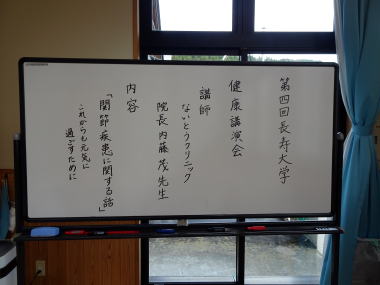 第四回長寿大学
健康講演会
講師
ないとうクリニック
院長内藤茂先生
内容
「関節疾患に関する話」
これからも元気に
過ごすために